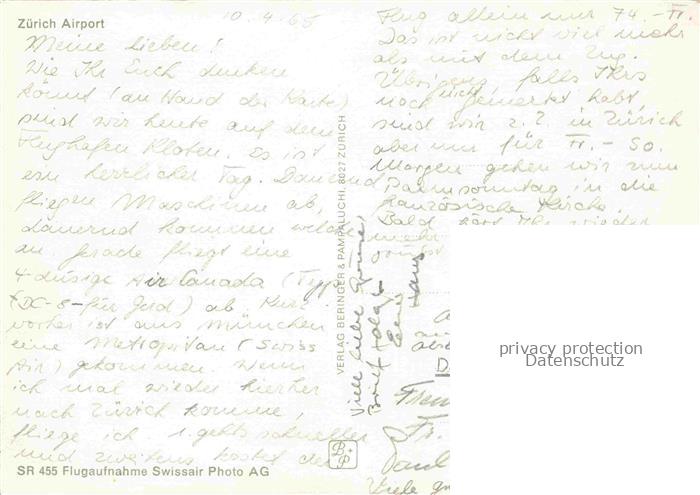 Zürich Airport
10.4.65
Meine Lieben!
Wie Ihr Euch denken
könnt (an Hand der Karte)
sind wir heute auf dem
Flughafen Kloten. Es ist
ein herrlicher Tag. Dauernd
fliegen Maschinen ab,
dauernd kommen welche
an. Gerade fliegt eine
4-düsige Air Canada (Typ
DC-8 - für Gerd) ab. Kurz
vorher ist aus München
eine Metropolitan (Swiss
Air) gekommen. Wenn
ich mal wieder hierher
nach Zürich komme,
fliege ich. 1. gehts schneller
und zweitens kostet der
SR 455 Flugaufnahme Swissair Photo AG
VERLAG BERINGER & PAMPALUCHI, 8027 ZÜRICH
Flug allein nur 74.- Fr.
Das ist nicht viel mehr
als mit dem Zug.
Übrigens, falls Ihrs
noch nicht gemerkt habt,
sind wir z.Z. in Zürich
aber nur für Fr. - So.
Morgen gehen wir zum
Palmsonntag in die
französische Kirche
Bald hört Ihr wieder
mehr
Viele liebe Grüsse,
Brief folgt
Hans
privacy protection
Datenschutz
Fr.
Paul
Viele